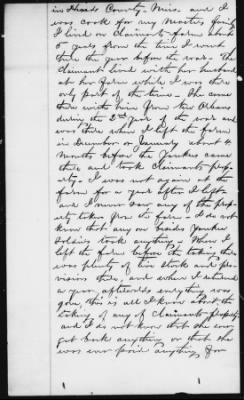 in Hinds County Miss. and I
was cook for my Masters family
I lived on Claimants farm about
5 years from the time I went
there the year before the war. The
Claimant lived with her husband
at her farm while I was there
only part of the time. She came
there with him from New Orleans
during the 2nd year of the war and
was there when I left the farm
in December or January about 4
Months before the Yankees came
there and took Claimants prope-
rty. I was not again at the
farm for a year after I left
and I never saw any of the pro-
perty taken from the farm. I do not
know that any one besides Yankee
Soldiers took anything. When I
left the farm before the taking there
was plenty of live stock and pro-
visions there and when I returned
a year afterwards everything was
gone, this is all I know about the
taking of any of Claimants property
and I do not know that she ever
got back anything or that she
was ever paid anything for